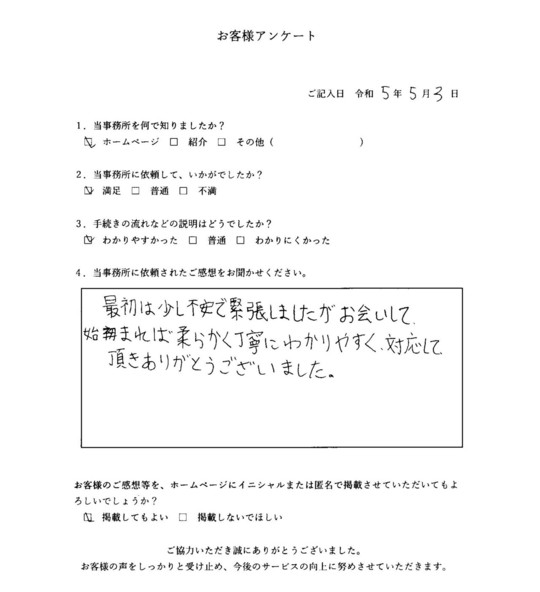 お客様アンケート
ご記入日 令和 5年 5月 3日
1．当事務所を何で知りましたか？
☑ ホームページ □ 紹介 □ その他（ ）
2．当事務所に依頼して、いかがでしたか？
☑ 満足 □ 普通 □ 不満
3．手続きの流れなどの説明はどうでしたか？
☑ わかりやすかった □ 普通 □ わかりにくかった
4．当事務所に依頼されたご感想をお聞かせください。
最初は少し不安で緊張しましたがお会いして、
始まれば柔らかく丁寧にわかりやすく、対応して
頂きありがとうございました。
お客様のご感想等を、ホームページにイニシャルまたは匿名で掲載させていただいてもよ
ろしいでしょうか？
☑ 掲載してもよい □ 掲載しないでほしい
ご協力いただき誠にありがとうございました。
お客様の声をしっかりと受け止め、今後のサービスの向上に努めさせていただきます。